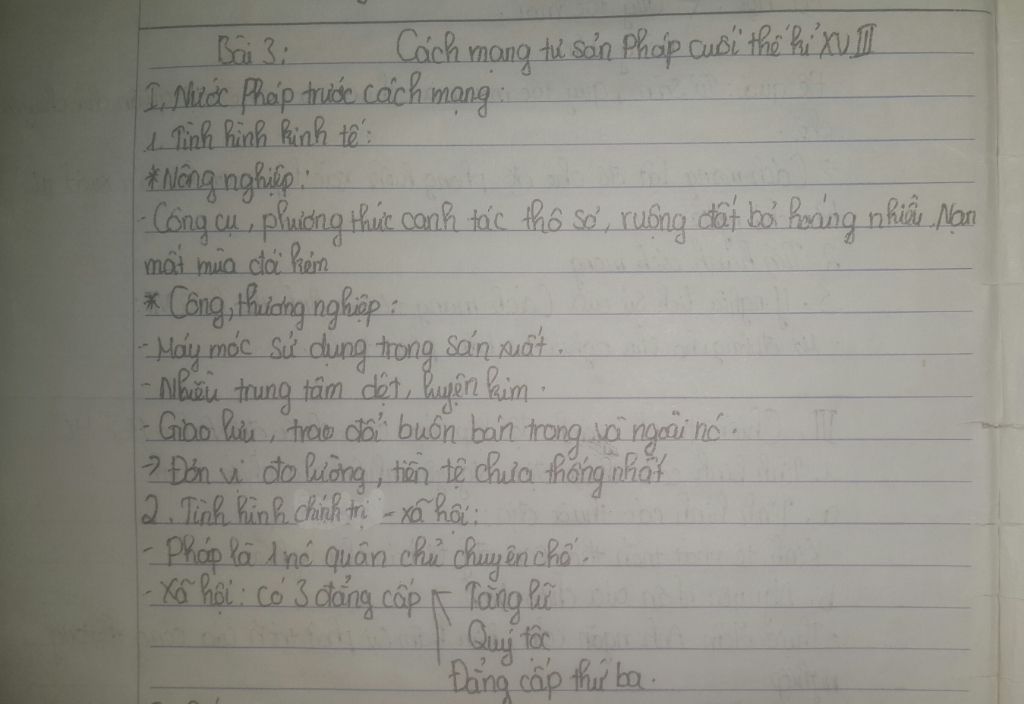 Bài 3: Cách mạng tư sản Pháp cuối thế kỉ XVIII
I, Nước Pháp trước cách mạng:
1. Tình hình kinh tế:
*Nông nghiệp:
- Công cụ, phương thức canh tác thô sơ, ruộng đất bỏ hoang nhiều. Nạn
mất mùa đói kém
* Công, thương nghiệp:
- Máy móc sử dụng trong sản xuất.
- Nhiều trung tâm dệt, luyện kim.
- Giao lưu, trao đổi buôn bán trong và ngoài nc.
→ Đơn vị đo lường, tiền tệ chưa thống nhất
2. Tình hình chính trị - xã hội:
- Pháp là 1 nc quân chủ chuyên chế.
- Xã hội: có 3 đẳng cấp Tăng lữ
Quý tộc
Đẳng cấp thứ ba.